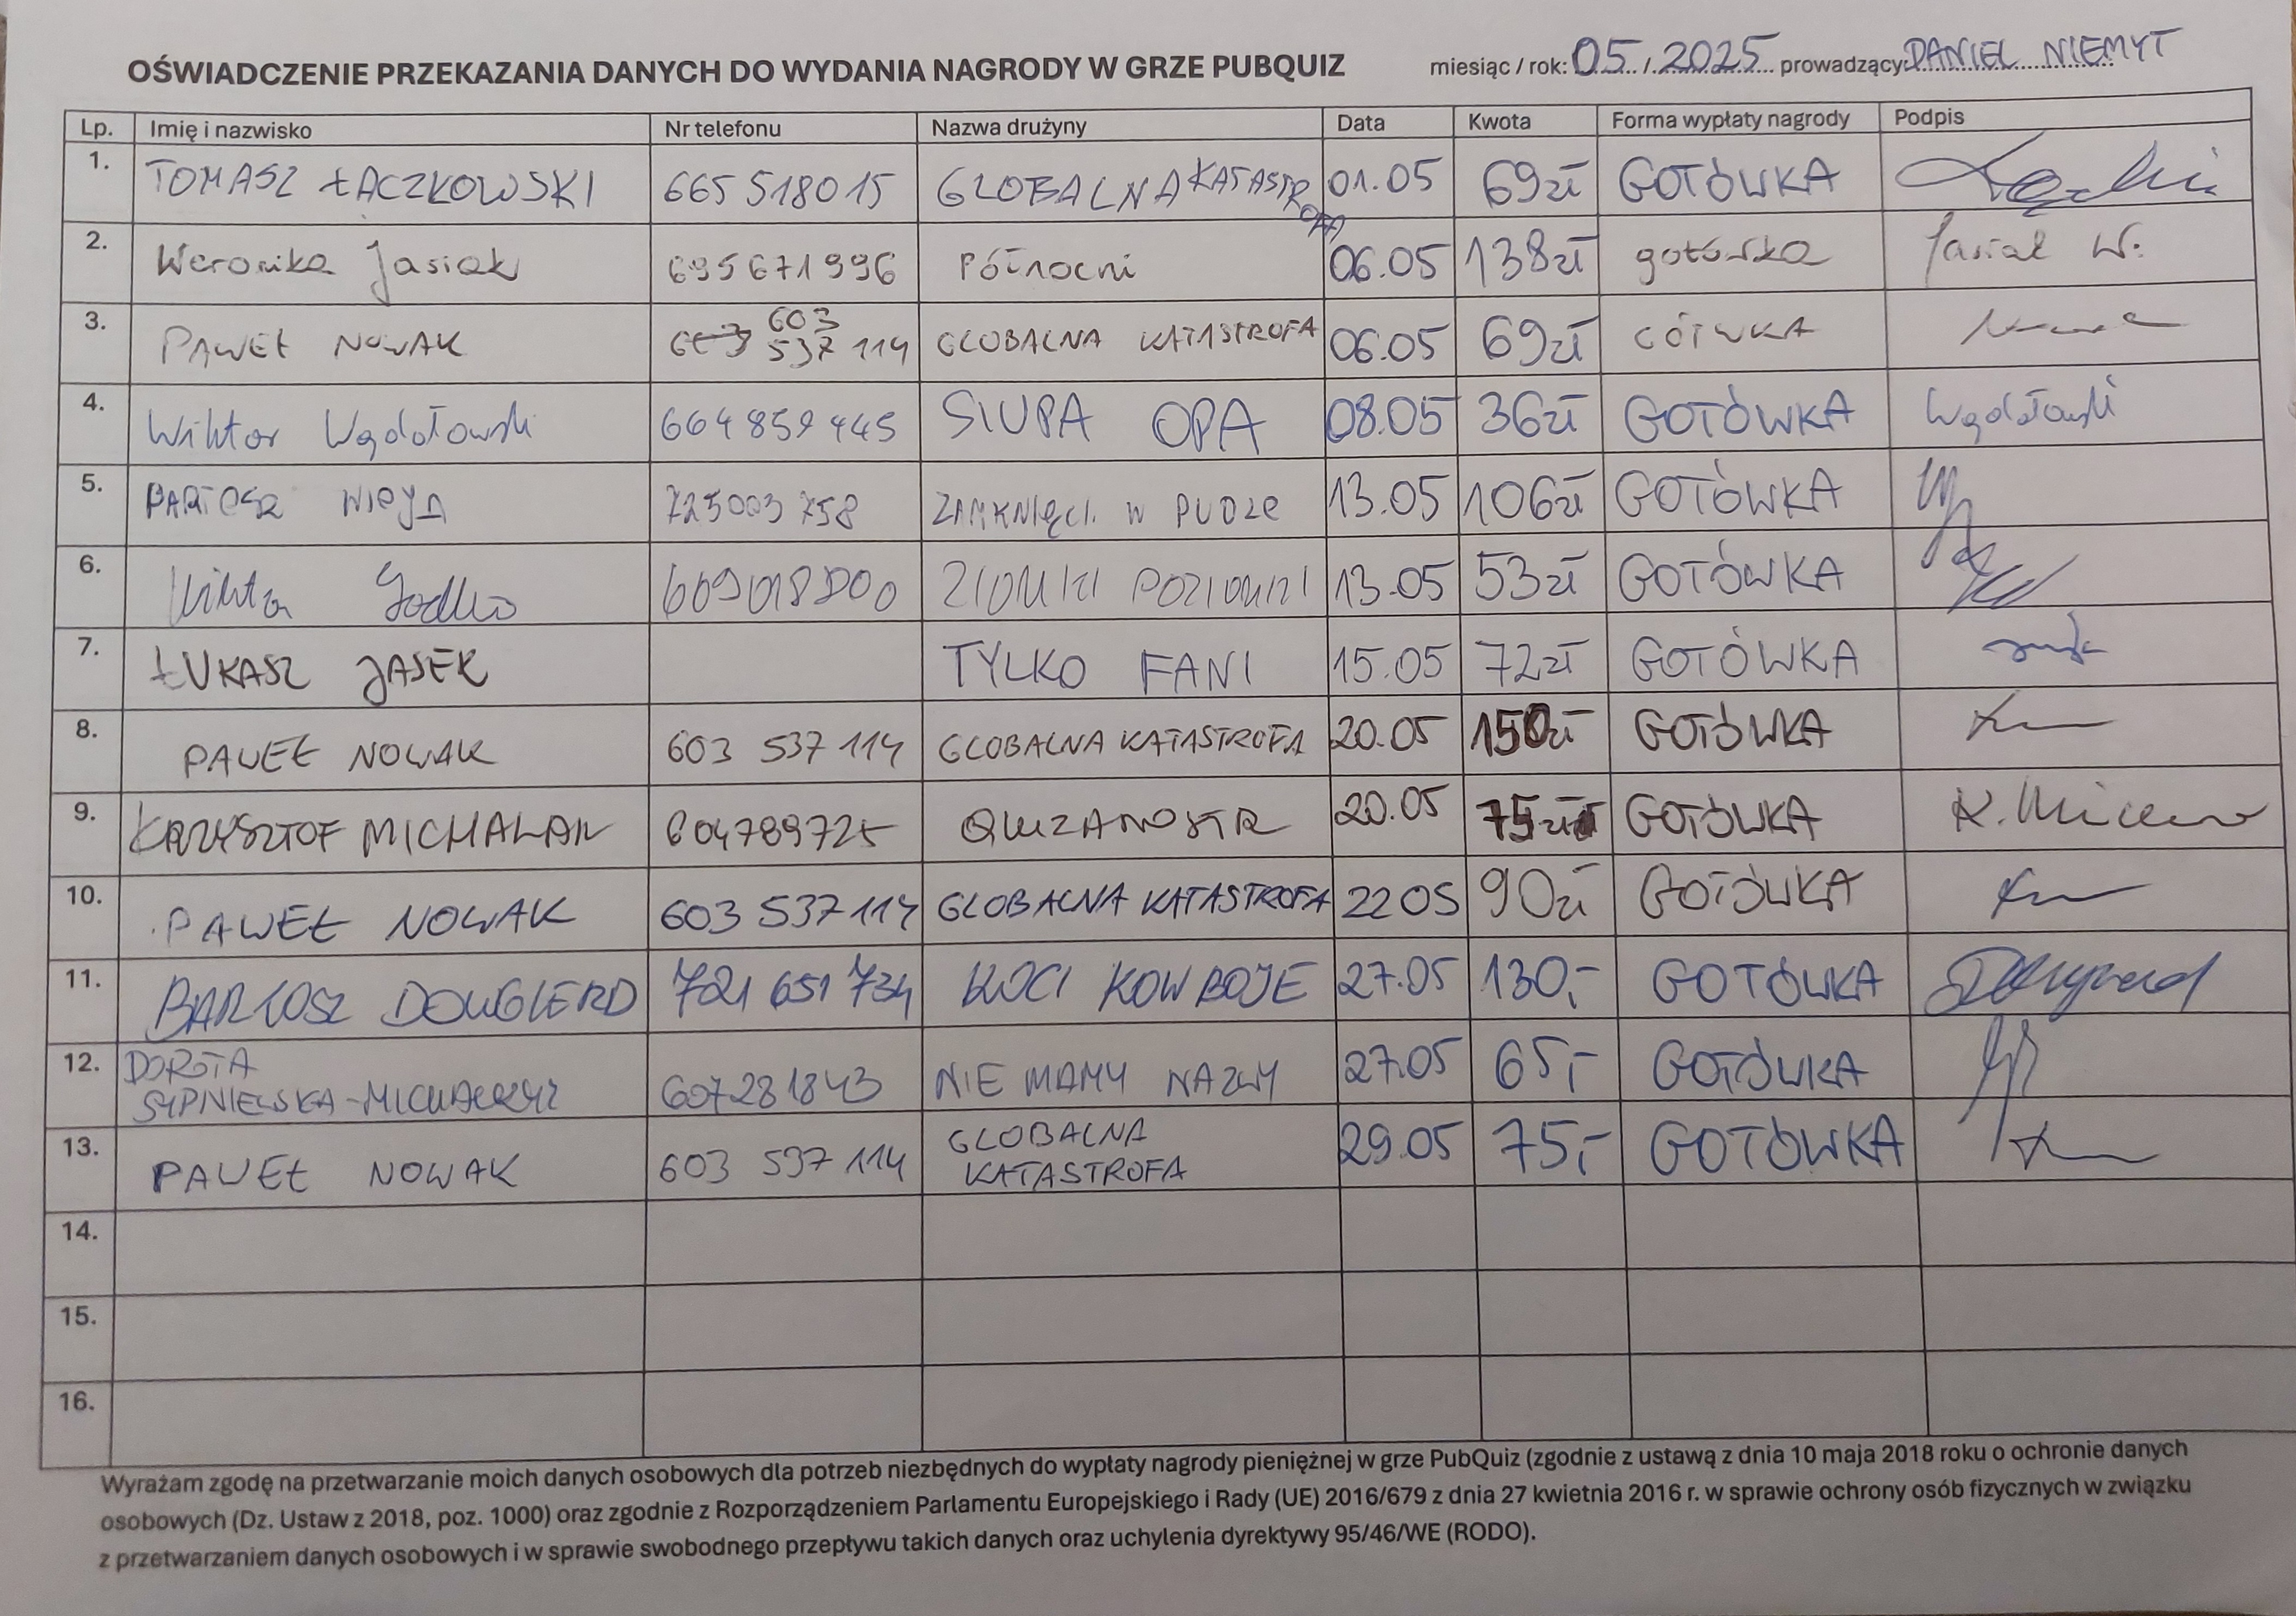 OŚWIADCZENIE PRZEKAZANIA DANYCH DO WYDANIA NAGRODY W GRZE PUBQUIZ miesiąc / rok: 05 / 2025 prowadzący: DANIEL NIEMYT
Lp. Imię i nazwisko Nr telefonu Nazwa drużyny Data Kwota Forma wypłaty nagrody Podpis
1. TOMASZ ŁĄCZKOWSKI 665 518015 GLOBALNA KATASTROFA 01.05 69zł GOTÓWKA
2. Weronika Jasiak 695671996 Północni 06.05 138zł gotówka Jasiak W.
3. PAWEŁ NOWAK 603 537 114 GLOBALNA KATASTROFA 06.05 69zł GÓTWKA
4. Wiktor Wądołowski 664 859 445 SIUPA OPA 08.05 36zł GOTÓWKA Wądołowski
5. BARTOSZ 725003758 ZAMKNIĘCI W PUDZE 13.05 106zł GOTÓWKA
6. 13.05 53zł GOTÓWKA
7. ŁUKASZ JASEK TYLKO FANI 15.05 72zł GOTÓWKA
8. PAWEŁ NOWAK 603 537 114 GLOBALNA KATASTROFA 20.05 150zł GOTÓWKA
9. KRZYSZTOF MICHALAK 604789725 20.05 75zł GOTÓWKA
10. PAWEŁ NOWAK 603 537 114 GLOBALNA KATASTROFA 22 05 90zł GOTÓWKA
11. BARTOSZ DOWGIERD 721 651 734 KOCI KOWBOJE 27.05 130,- GOTÓWKA
12. DOROTA 607281843 NIE MAMY NAZWY 27.05 65,- GOTÓWKA
13. PAWEŁ NOWAK 603 537 114 GLOBALNA KATASTROFA 29.05 75,- GOTÓWKA
14.
15.
16.
Wyrażam zgodę na przetwarzanie moich danych osobowych dla potrzeb niezbędnych do wypłaty nagrody pieniężnej w grze PubQuiz (zgodnie z ustawą z dnia 10 maja 2018 roku o ochronie danych
osobowych (Dz. Ustaw z 2018, poz. 1000) oraz zgodnie z Rozporządzeniem Parlamentu Europejskiego i Rady (UE) 2016/679 z dnia 27 kwietnia 2016 r. w sprawie ochrony osób fizycznych w związku
z przetwarzaniem danych osobowych i w sprawie swobodnego przepływu takich danych oraz uchylenia dyrektywy 95/46/WE (RODO).